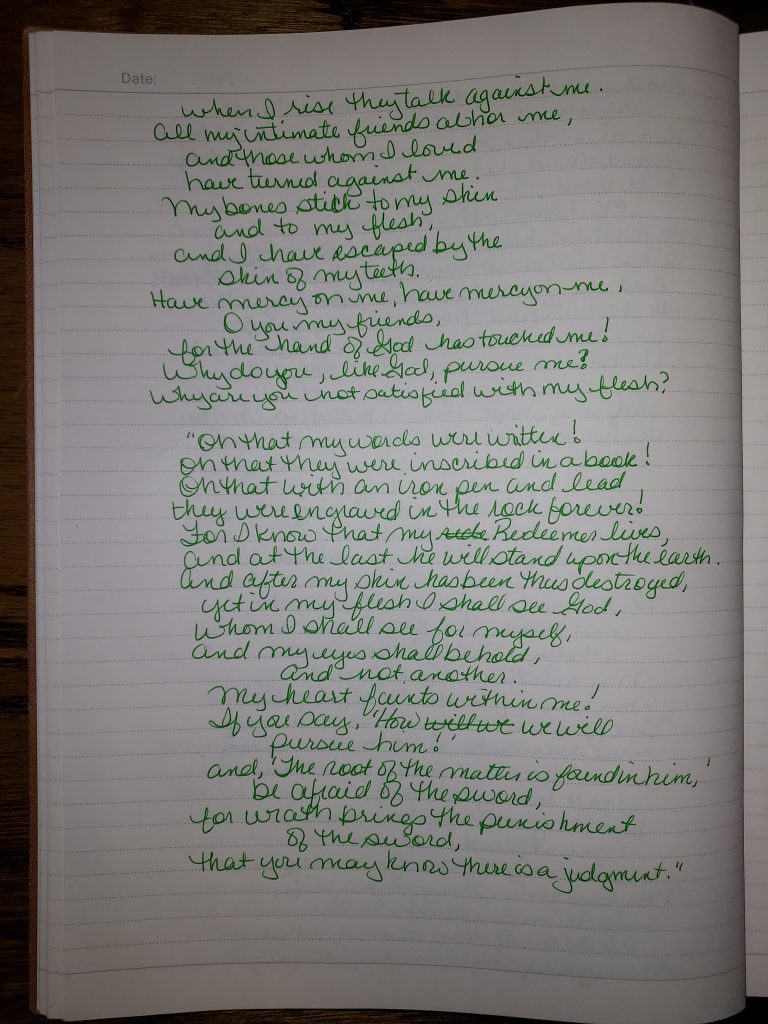 Date:
when I rise they talk against me.
All my intimate friends abhor me,
and those whom I loved
have turned against me.
My bones stick to my skin
and to my flesh,
and I have escaped by the
skin of my teeth.
Have mercy on me, have mercy on me,
O you my friends,
for the hand of God has touched me!
Why do you, like God, pursue me?
Why are you not satisfied with my flesh?
"Oh that my words were written!
Oh that they were inscribed in a book!
Oh that with an iron pen and lead
they were engraved in the rock forever!
For I know that my Redeemer lives,
and at the last he will stand upon the earth.
And after my skin has been thus destroyed,
yet in my flesh I shall see God,
whom I shall see for myself,
and my eyes shall behold,
and not another.
My heart faints within me!
If you say, 'How will we we will
pursue him!'
and, 'The root of the matter is found in him,'
be afraid of the sword,
for wrath brings the punishment
of the sword,
that you may know there is a judgment."